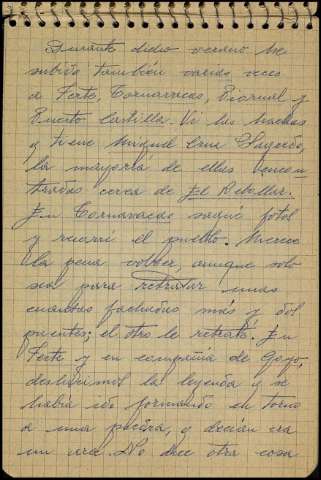 Durante dicho verano he
subido también varias veces
a Ferte, Tornavacas, Riornal y
Puerto Castilla. Vi las hachas
q tiene Miguel Cruz Sagredo,
la mayoría de ellas encon-
tradas cerca de El Rebollar.
En Tornavacas saqué fotos
y recorrí el pueblo. Merece
la pena volver, aunque solo
sea para retratar unas
cuantas fachadas más y del
puente; el otro le retraté. En
Ferte y en compañía de Goyo,
desbaratamos la leyenda q se
había ido formando en torno
a una piedra, q decían era
un ara. No dice otra cosa